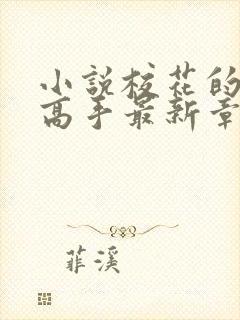 小說校花的
高手最新章
菲溪